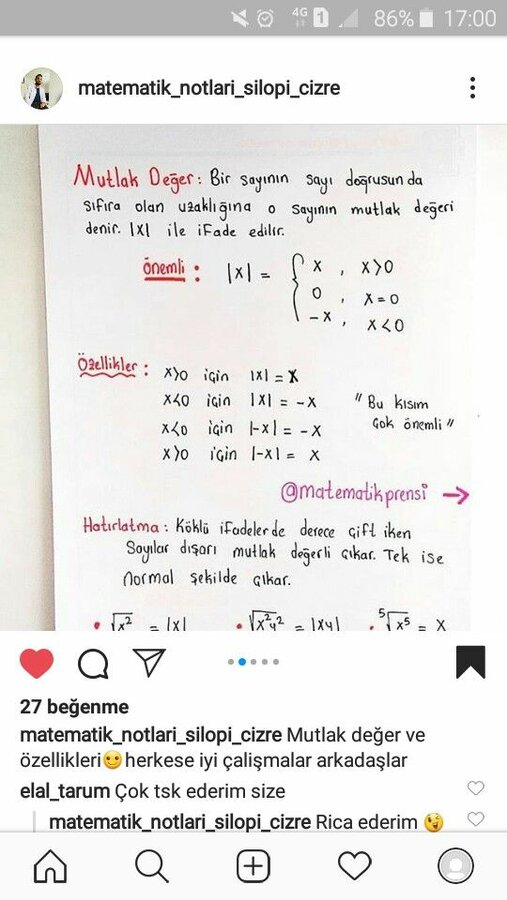 4G 1 86% 17:00
matematik_notlari_silopi_cizre
Mutlak Değer: Bir sayının sayı doğrusunda
sıfıra olan uzaklığına o sayının mutlak değeri
denir. |x| ile ifade edilir.
Önemli : |x| = { x , x>0
0 , x=0
-x , x<0
Özellikler: x>0 için |x| = x
x<0 için |x| = -x "Bu kısım
x<0 için |-x| = -x çok önemli"
x>0 için |-x| = x
@matematikprensi →
Hatırlatma: Köklü ifadelerde derece çift iken
Sayılar dışarı mutlak değerli çıkar. Tek ise
normal şekilde çıkar.
• √x² = |x| • √x²y² = |xy| • ⁵√x⁵ = x
27 beğenme
matematik_notlari_silopi_cizre Mutlak değer ve
özellikleri🙂herkese iyi çalişmalar arkadaşlar
elal_tarum Çok tsk ederim size
matematik_notlari_silopi_cizre Rica ederim 😉